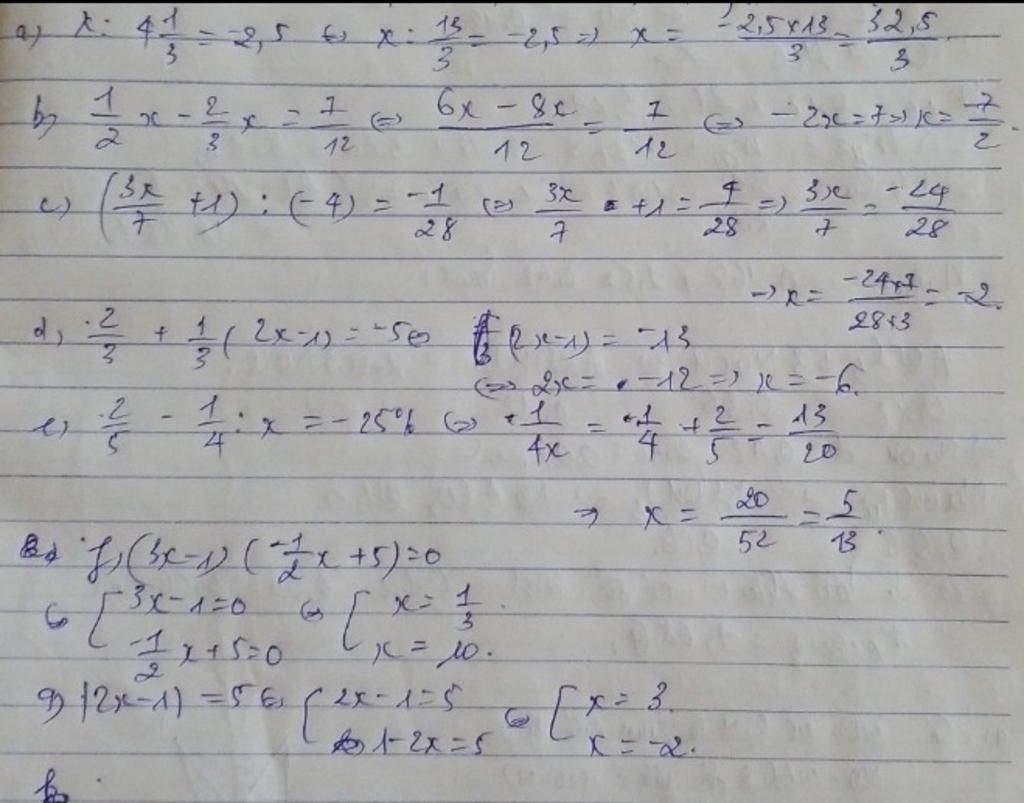 a) x : 4 1/3 = -2,5 ⇔ x : 13/3 = -2,5 ⇒ x = -2,5×13/3 = 32,5/3
b) 1/2 x - 2/3 x = 7/12 ⇔ (6x - 8x)/12 = 7/12 ⇔ -2x = 7 ⇒ x = -7/2
c) (3x/7 + 1) : (-4) = -1/28 ⇔ 3x/7 + 1 = 4/28 ⇒ 3x/7 = -24/28
⇒ x = -24×7/28×3 = -2.
d) 2/3 + 1/3 (2x-1) = -5 ⇔ (2x-1) = -13
⇔ 2x = -12 ⇒ x = -6.
e) 2/5 - 1/4 : x = -25% ⇔ 1/4x = 1/4 + 2/5 = 13/20
⇒ x = 20/52 = 5/13.
f) (3x-1) (-1/2 x + 5) = 0
⇔ [ 3x-1=0 ⇔ [ x = 1/3.
-1/2 x + 5 = 0 x = 10.
g) |2x-1| = 5 ⇔ [ 2x-1 = 5 ⇔ [ x = 3.
1-2x = 5 x = -2.